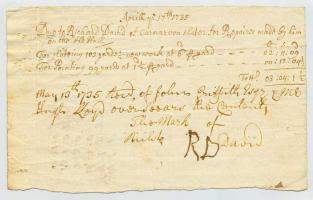 Aprill ye 17th 1735
Due to Richard David of Carnarvon slator for Repaires made by him
on the
For slateing 102 yards: new work at per yard - 02:11:00
For Pointing 99 yards at per yard - 00:12:04½
Totall 03:04:½
May 13th 1735 Recd. of John Griffith Esqr & Mr
Hugh Lloyd overseears the Contents
The Mark of
Richd RD David